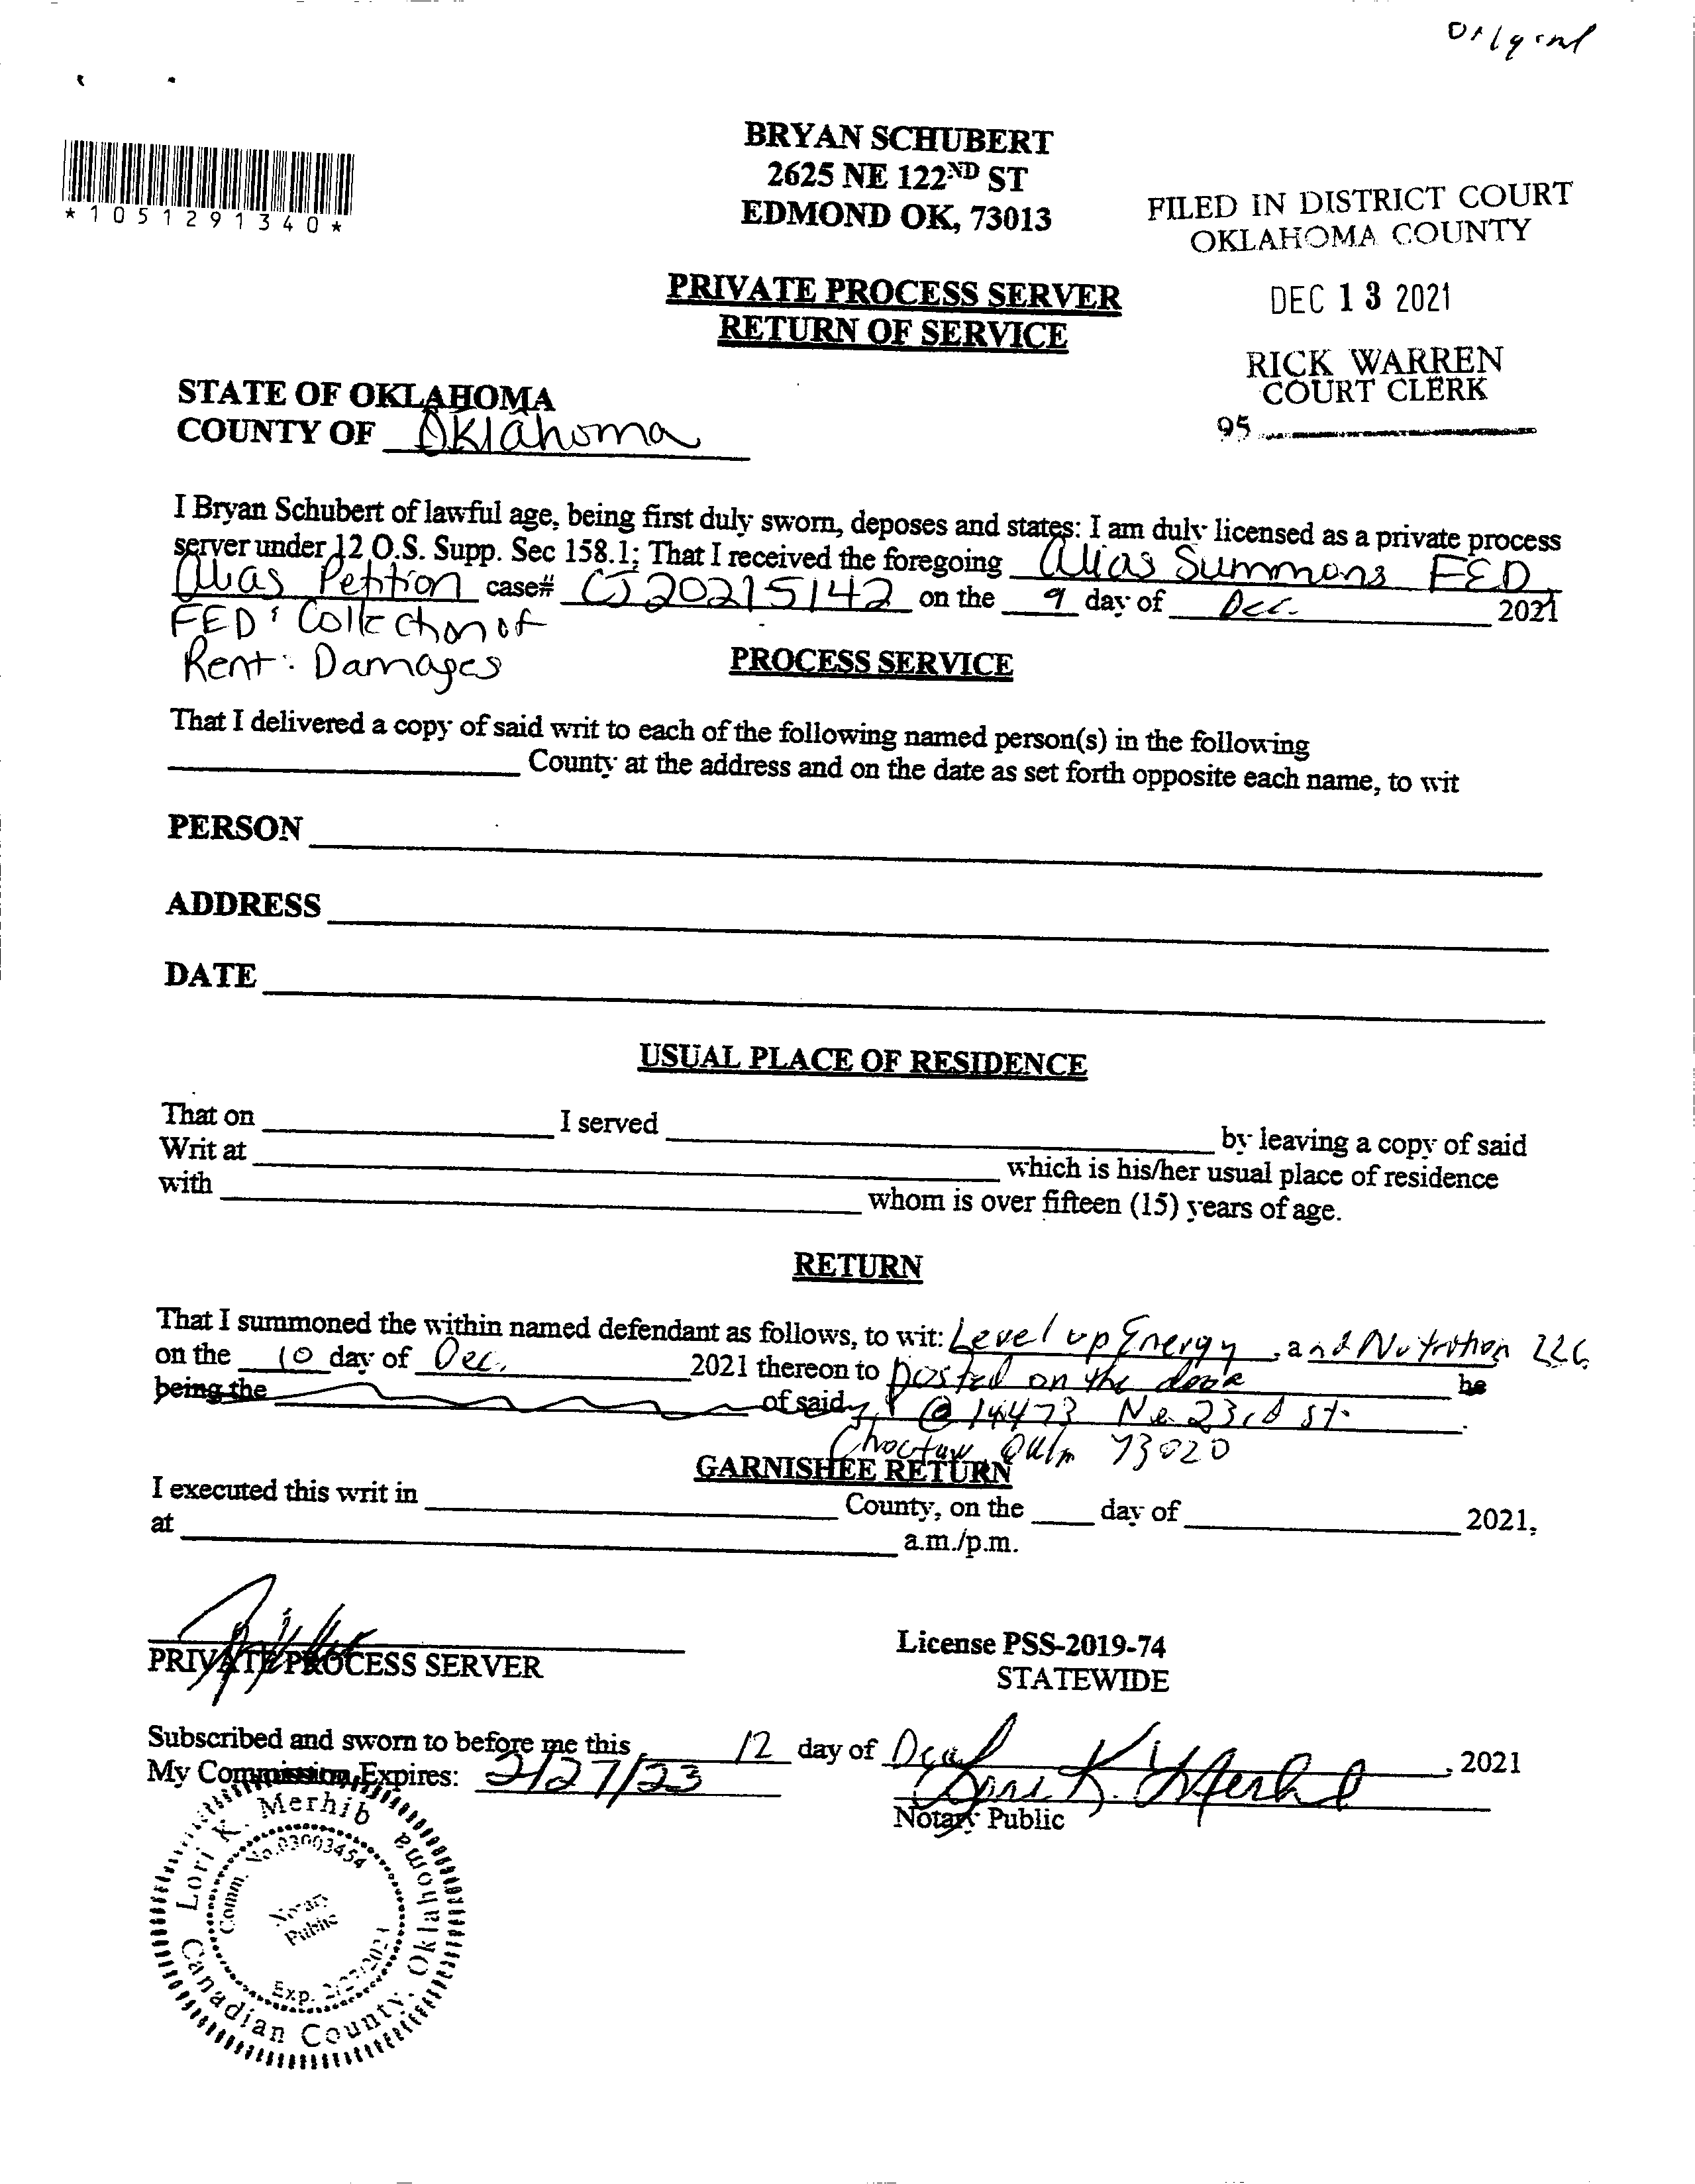 Original
*1051291340*
BRYAN SCHUBERT
2625 NE 122ND ST
EDMOND OK, 73013
FILED IN DISTRICT COURT
OKLAHOMA COUNTY
DEC 13 2021
RICK WARREN
COURT CLERK
95
PRIVATE PROCESS SERVER
RETURN OF SERVICE
STATE OF OKLAHOMA
COUNTY OF Oklahoma
I Bryan Schubert of lawful age, being first duly sworn, deposes and states: I am duly licensed as a private process
server under 12 O.S. Supp. Sec 158.1; That I received the foregoing Alias Summons FED
Alias Petition case# CJ20215142 on the 9 day of Dec. 2021
FED & Collection of
Rent & Damages
PROCESS SERVICE
That I delivered a copy of said writ to each of the following named person(s) in the following
County at the address and on the date as set forth opposite each name, to wit
PERSON
ADDRESS
DATE
USUAL PLACE OF RESIDENCE
That on I served by leaving a copy of said
Writ at which is his/her usual place of residence
with whom is over fifteen (15) years of age.
RETURN
That I summoned the within named defendant as follows, to wit: Level up Energy and Nutrition LLC
on the 10 day of Dec. 2021 thereon to posted on the door he
being the of said @ 14473 Ne 23rd st.
Choctaw 73020
GARNISHEE RETURN
I executed this writ in County, on the day of 2021,
at a.m./p.m.
PRIVATE PROCESS SERVER
License PSS-2019-74
STATEWIDE
Subscribed and sworn to before me this 12 day of 2021
My Commission Expires: 2/27/23
Lori K. Merhib
Notary Public
Lori K. Merhib
Comm. No.03003454
Notary
Public
Exp.
Canadian County, Oklahoma